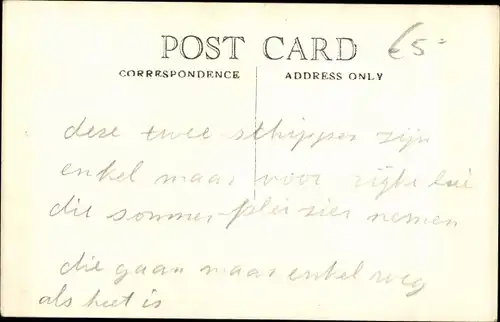 POST CARD
€5=
CORRESPONDENCE ADDRESS ONLY
dese twee schippes zijn
enkel maar voor rijke lui
die sommer pleisier nemen
die gaan maar enkel weg
als heet is